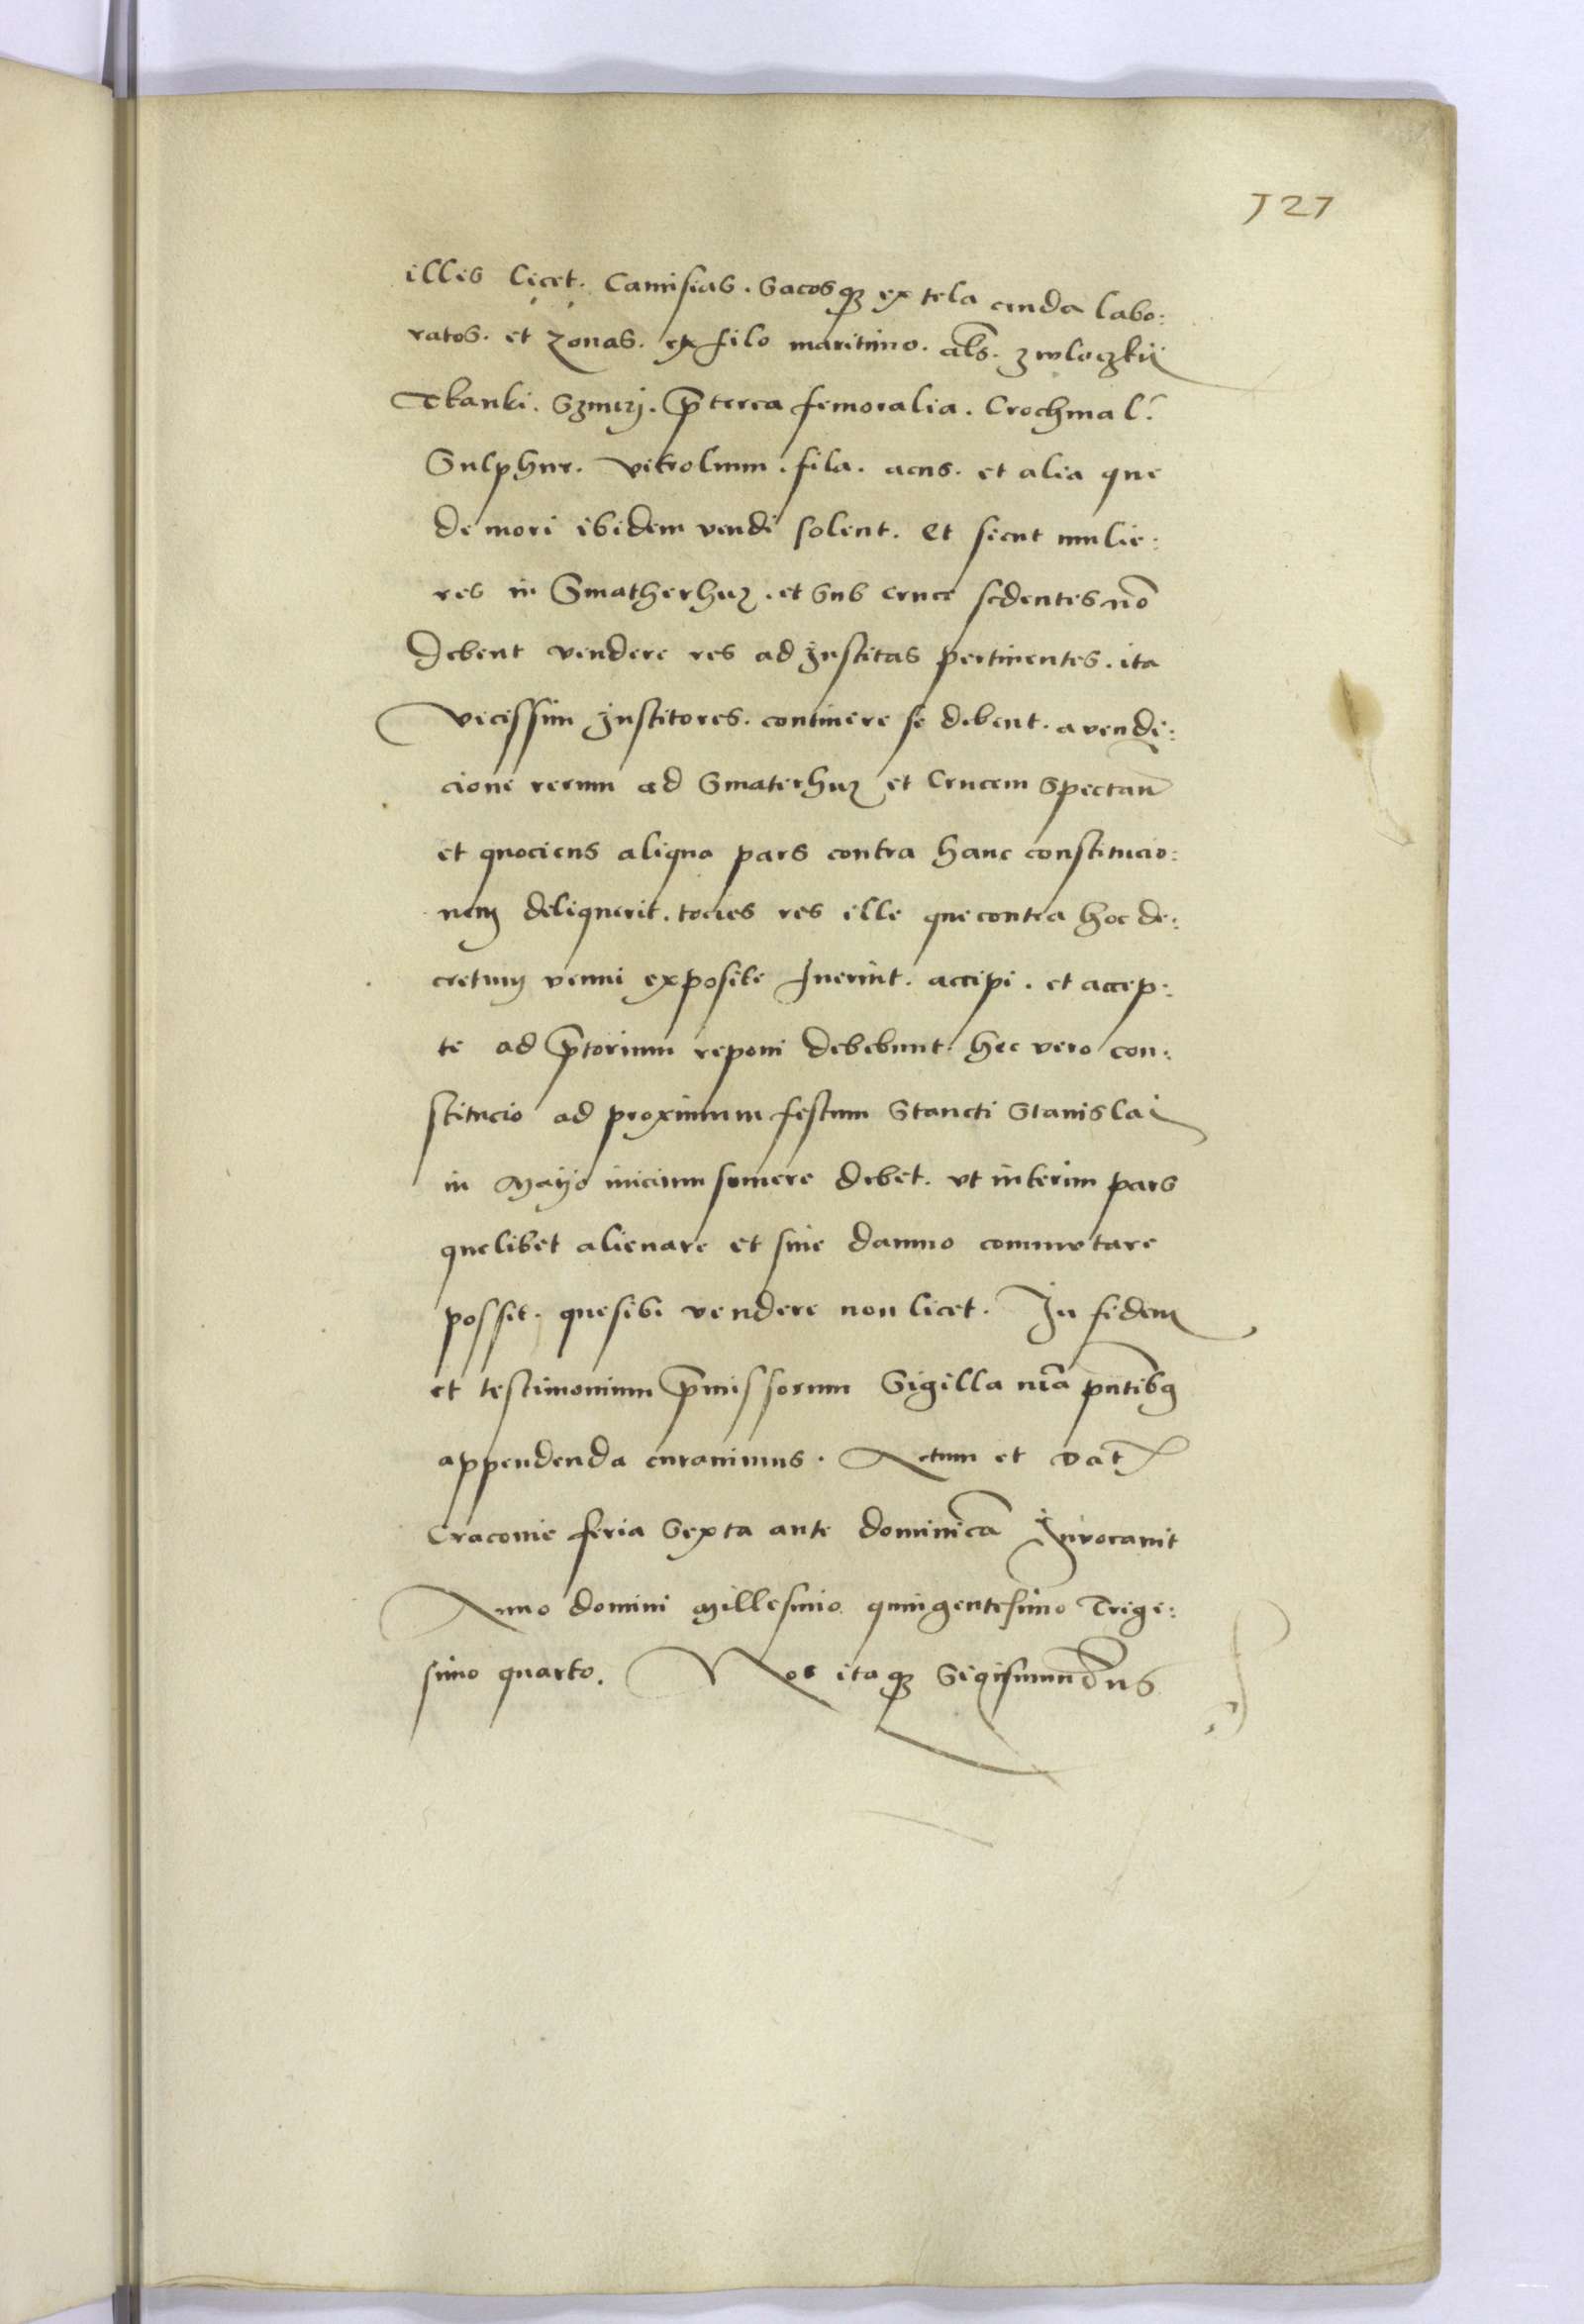 127
illis licet. Camisias. Sacosq₃ ex tela cruda labo:
ratos. et Zonas. ex filo maritimo. als̄. zwloczkij
Tkanki. Sznuri. p̄terea femoralia. Crochmal.
Sulphur. vitrolium. fila. acus. et alia que
de mori ibidem vendi solent. Et sicut mulie:
res in Smatherhuz. et sub cruce sedentes nō
debent vendere res ad Institas pertinentes. ita
vicissim Institores. continere se debent. a vendi:
cione rerum ad Smaterhuz et Crucem Spectan̄
et quociens aliqua pars contra hanc constitucio:
nem deliquerit. tocies res ille que contra hoc de:
cretum venui exposite fuerint. accipi. et accep:
te ad p̄torium reponi debebunt. hec vero con:
stitucio ad proximum festum Stancti Stanislai
in Mayo inicium sumere debet. vt interim pars
quelibet alienare et sine damno commutare
possit. que sibi vendere non licet. In fidem
et testimonium p̄missorum Sigilla nr̄a pn̄tib₉
appendenda curauimus. Actum et Dat̄
Cracouie feria Sexta ante dominicā Inuocauit
Anno domini Millesimo quingentesimo Trige:
simo quarto. Nos itaq₃ Sigismundus